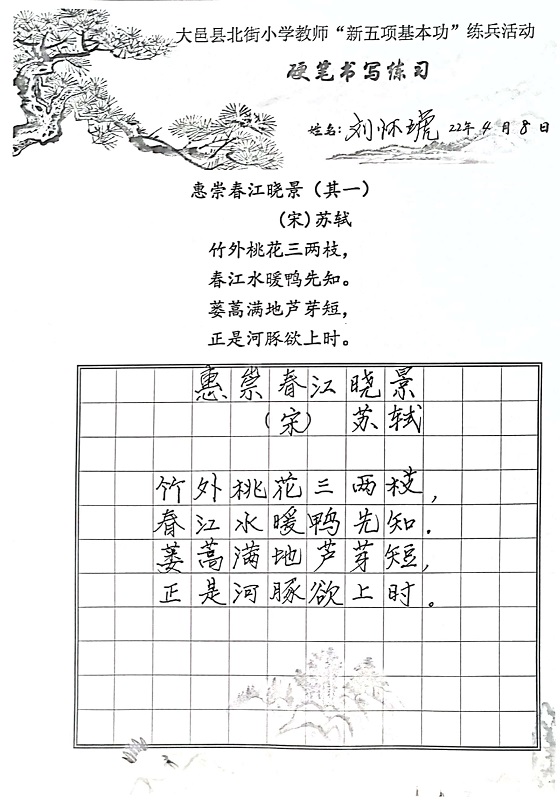 大邑县北街小学教师“新五项基本功”练兵活动
硬笔书写练习
姓名：刘怀琥 22年4月8日
惠崇春江晓景（其一）
（宋）苏轼
竹外桃花三两枝，
春江水暖鸭先知。
蒌蒿满地芦芽短，
正是河豚欲上时。
惠崇春江晓景
（宋） 苏轼
竹外桃花三两枝，
春江水暖鸭先知.
蒌蒿满地芦芽短，
正是河豚欲上时。